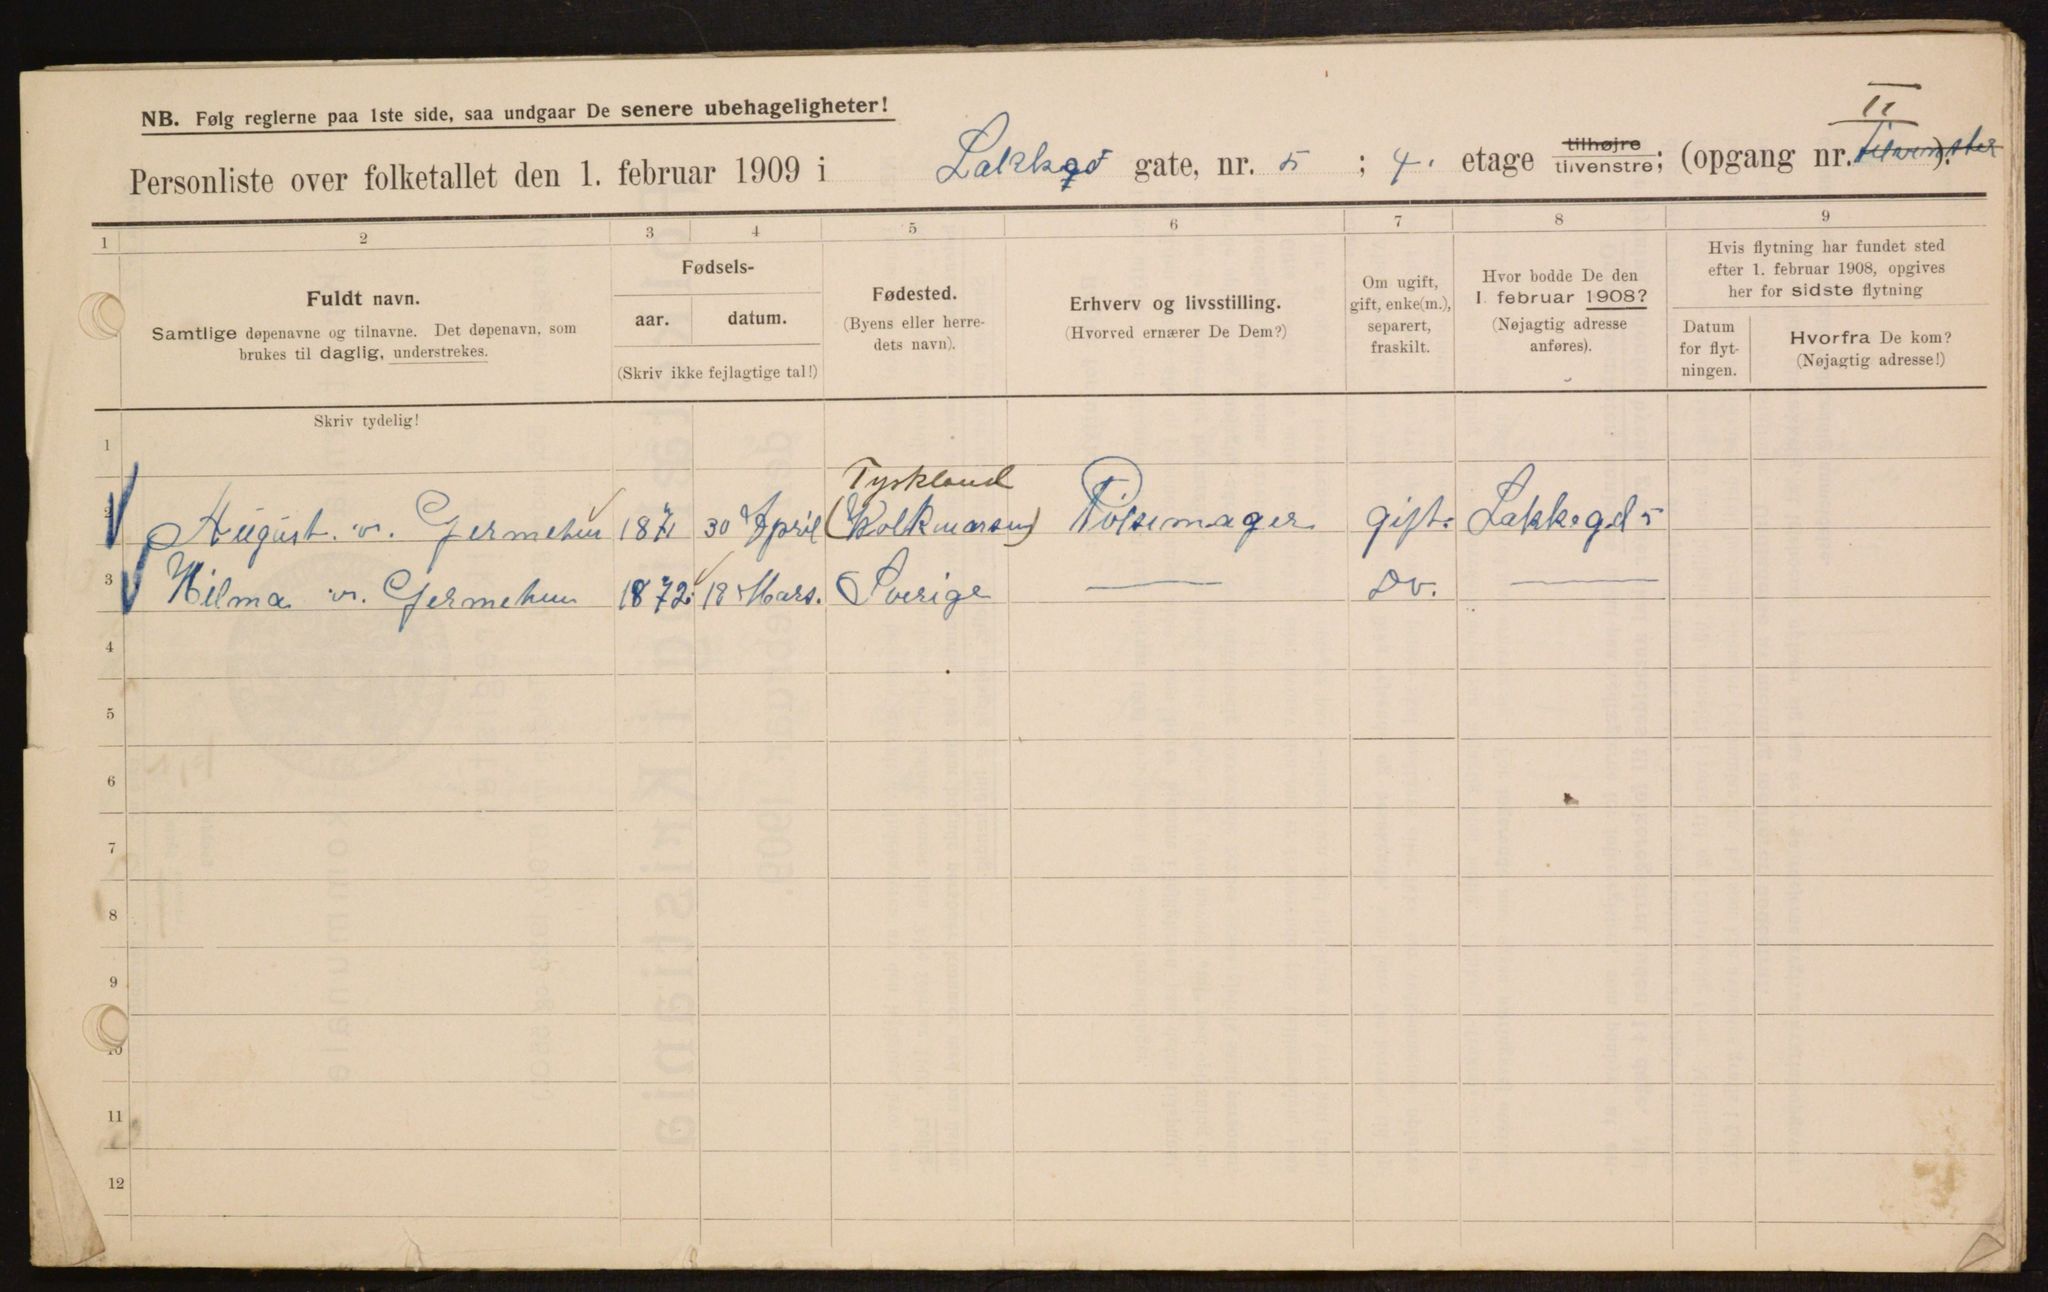 NB. Følg reglerne paa 1ste side, saa undgaar De senere ubehageligheter!
II
Personliste over folketallet den 1. februar 1909 i Lakkegd gate, nr. 5 ; 4. etage tilhøjre tilvenstre; (opgang nr. Tilvenster).
1 2 3 4 5 6 7 8 9
Fuldt navn.
Samtlige døpenavne og tilnavne. Det døpenavn, som
brukes til daglig, understrekes.
Fødsels-
aar. datum.
(Skriv ikke fejlagtige tal!)
Fødested.
(Byens eller herre-
dets navn).
Erhverv og livsstilling.
(Hvorved ernærer De Dem?)
Om ugift,
gift, enke(m.),
separert,
fraskilt.
Hvor bodde De den
1. februar 1908?
(Nøjagtig adresse
anføres).
Hvis flytning har fundet sted
efter 1. februar 1908, opgives
her for sidste flytning
Datum
for flyt-
ningen.
Hvorfra De kom?
(Nøjagtig adresse!)
Skriv tydelig!
1
Tyskland
2 August. v. Germehen 1871 30 April (Volkmarsen) Pölsemager gift. Lakkegd 5
3 Hilma v. Germehen 1872 18 Mars. Sverige — Do. —
4
5
6
7
8
9
10
11
12